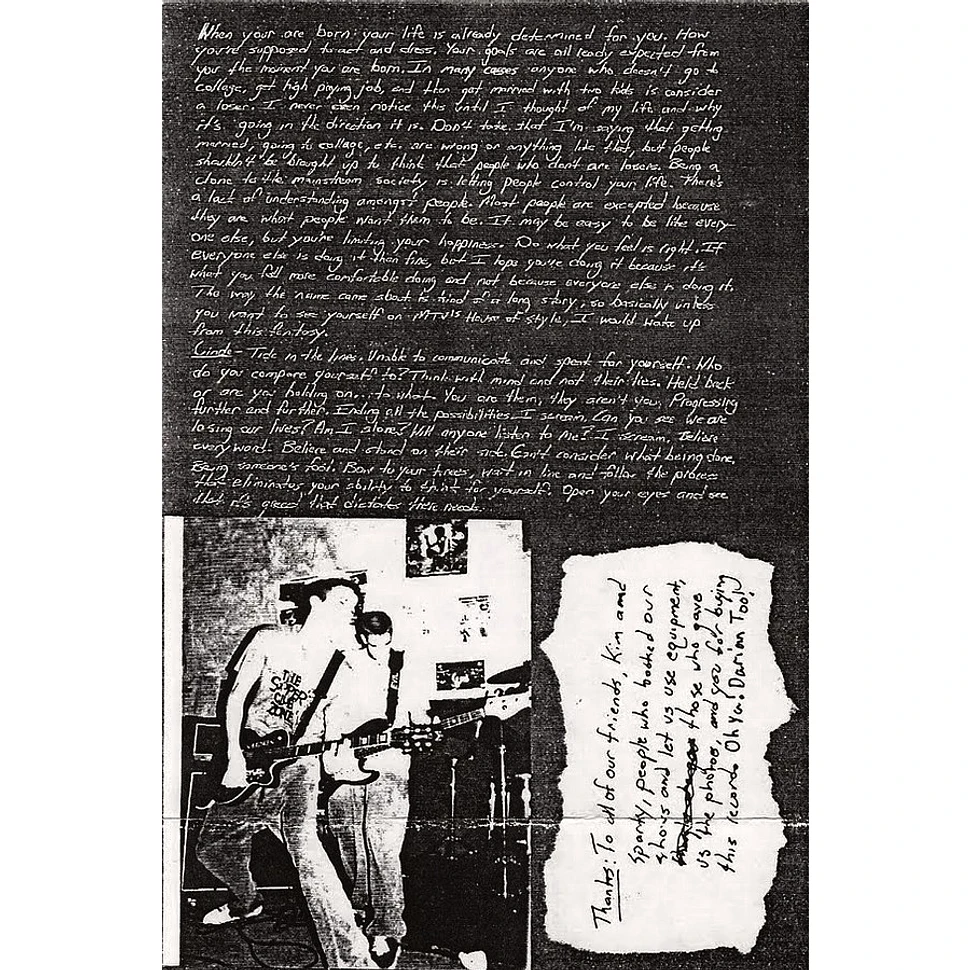 When your are born: your life is already determined for you. How
you're supposed to act and dress. Your goals are all ready expected from
you the moment you are born. In many cases anyone who doesn't go to
collage, get high paying job, and then get married with two kids is consider
a loser. I never even notice this until I thought of my life and why
it's going in the direction it is. Don't take that I'm saying that getting
married, going to collage, etc. are wrong or anything like that, but people
shouldn't be brought up to think that people who don't are losers. Being a
clone to the mainstream society is letting people control your life. There's
a lack of understanding amongst people. Most people are excepted because
they are what people want them to be. It may be easy to be like every-
one else, but you're limiting your happiness. Do what you feel is right. If
everyone else is doing it then fine, but I hope you're doing it because it's
what you fell more comfortable doing and not because everyone else is doing it.
The way the name came about is kind of a long story, so basically unless
you want to see yourself on MTV's House of style, I would wake up
from this fantasy.
Cinde- Tide in the lines. Unable to communicate and speak for yourself. Who
do you compare yourself to? Think with mind and not their ties. Held back
or are you holding on...to what. You are them, they aren't you. Progressing
further and further. Ending all the possibilities. I scream. Can you see we are
losing our lives? Am I alone? Will anyone listen to me? I scream. Believe
every word. Believe and stand on their side. Can't consider what being done.
Being someone's fool. Bow to your trees, wait in line and follow the process
that eliminates your ability to think for yourself. Open your eyes and see
that it's greed that dictates their needs.
THE
ZONE
Thanks: To all of our friends, Kim and
Sparky, people who booked our
shows and let us use equipment,
those who gave
us the photos, and you for buying
this record. Oh Ya! Darian Too!